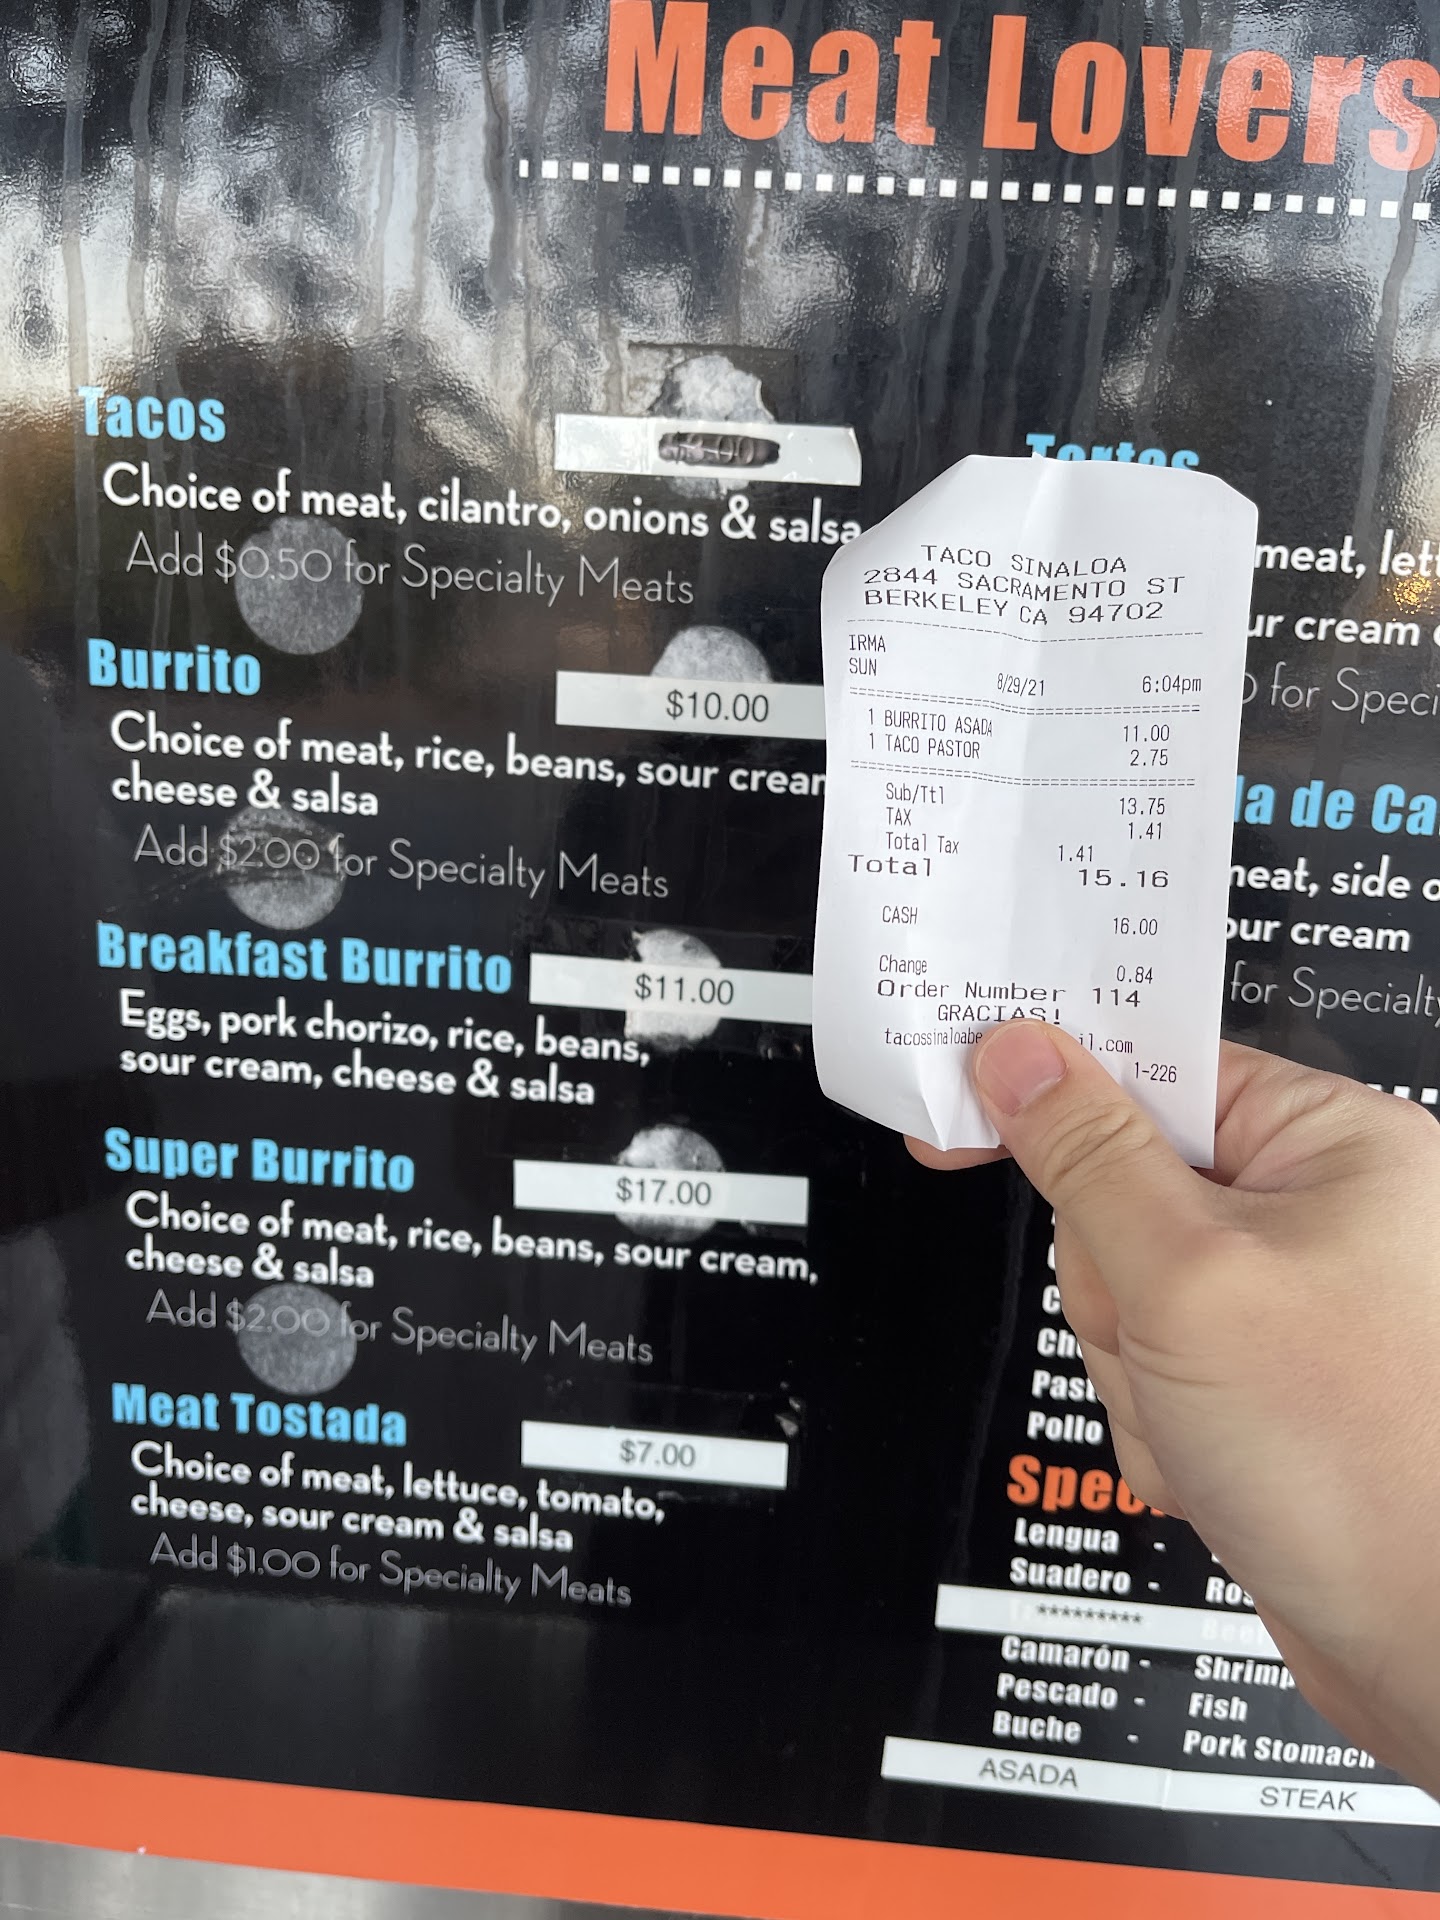 Meat Lovers
Tacos
Choice of meat, cilantro, onions & salsa
Add $0.50 for Specialty Meats
Burrito
$10.00
Choice of meat, rice, beans, sour cream
cheese & salsa
Add $2.00 for Specialty Meats
Breakfast Burrito
$11.00
Eggs, pork chorizo, rice, beans,
sour cream, cheese & salsa
Super Burrito
$17.00
Choice of meat, rice, beans, sour cream,
cheese & salsa
Add $2.00 for Specialty Meats
Meat Tostada
$7.00
Choice of meat, lettuce, tomato,
cheese, sour cream & salsa
Add $1.00 for Specialty Meats
Tortas
meat, lett
ur cream
for Speci
la de Ca
meat, side o
our cream
for Specialty
TACO SINALOA
2844 SACRAMENTO ST
BERKELEY CA 94702
IRMA
SUN 8/29/21 6:04pm
1 BURRITO ASADA 11.00
1 TACO PASTOR 2.75
Sub/Ttl 13.75
TAX 1.41
Total Tax 1.41
Total 15.16
CASH 16.00
Change 0.84
Order Number 114
GRACIAS!
tacossinaloabe il.com
1-226
Ch
Past
Pollo
Spec
Lengua -
Suadero - Ros
*********
Camarón - Shrimp
Pescado - Fish
Buche - Pork Stomach
ASADA STEAK